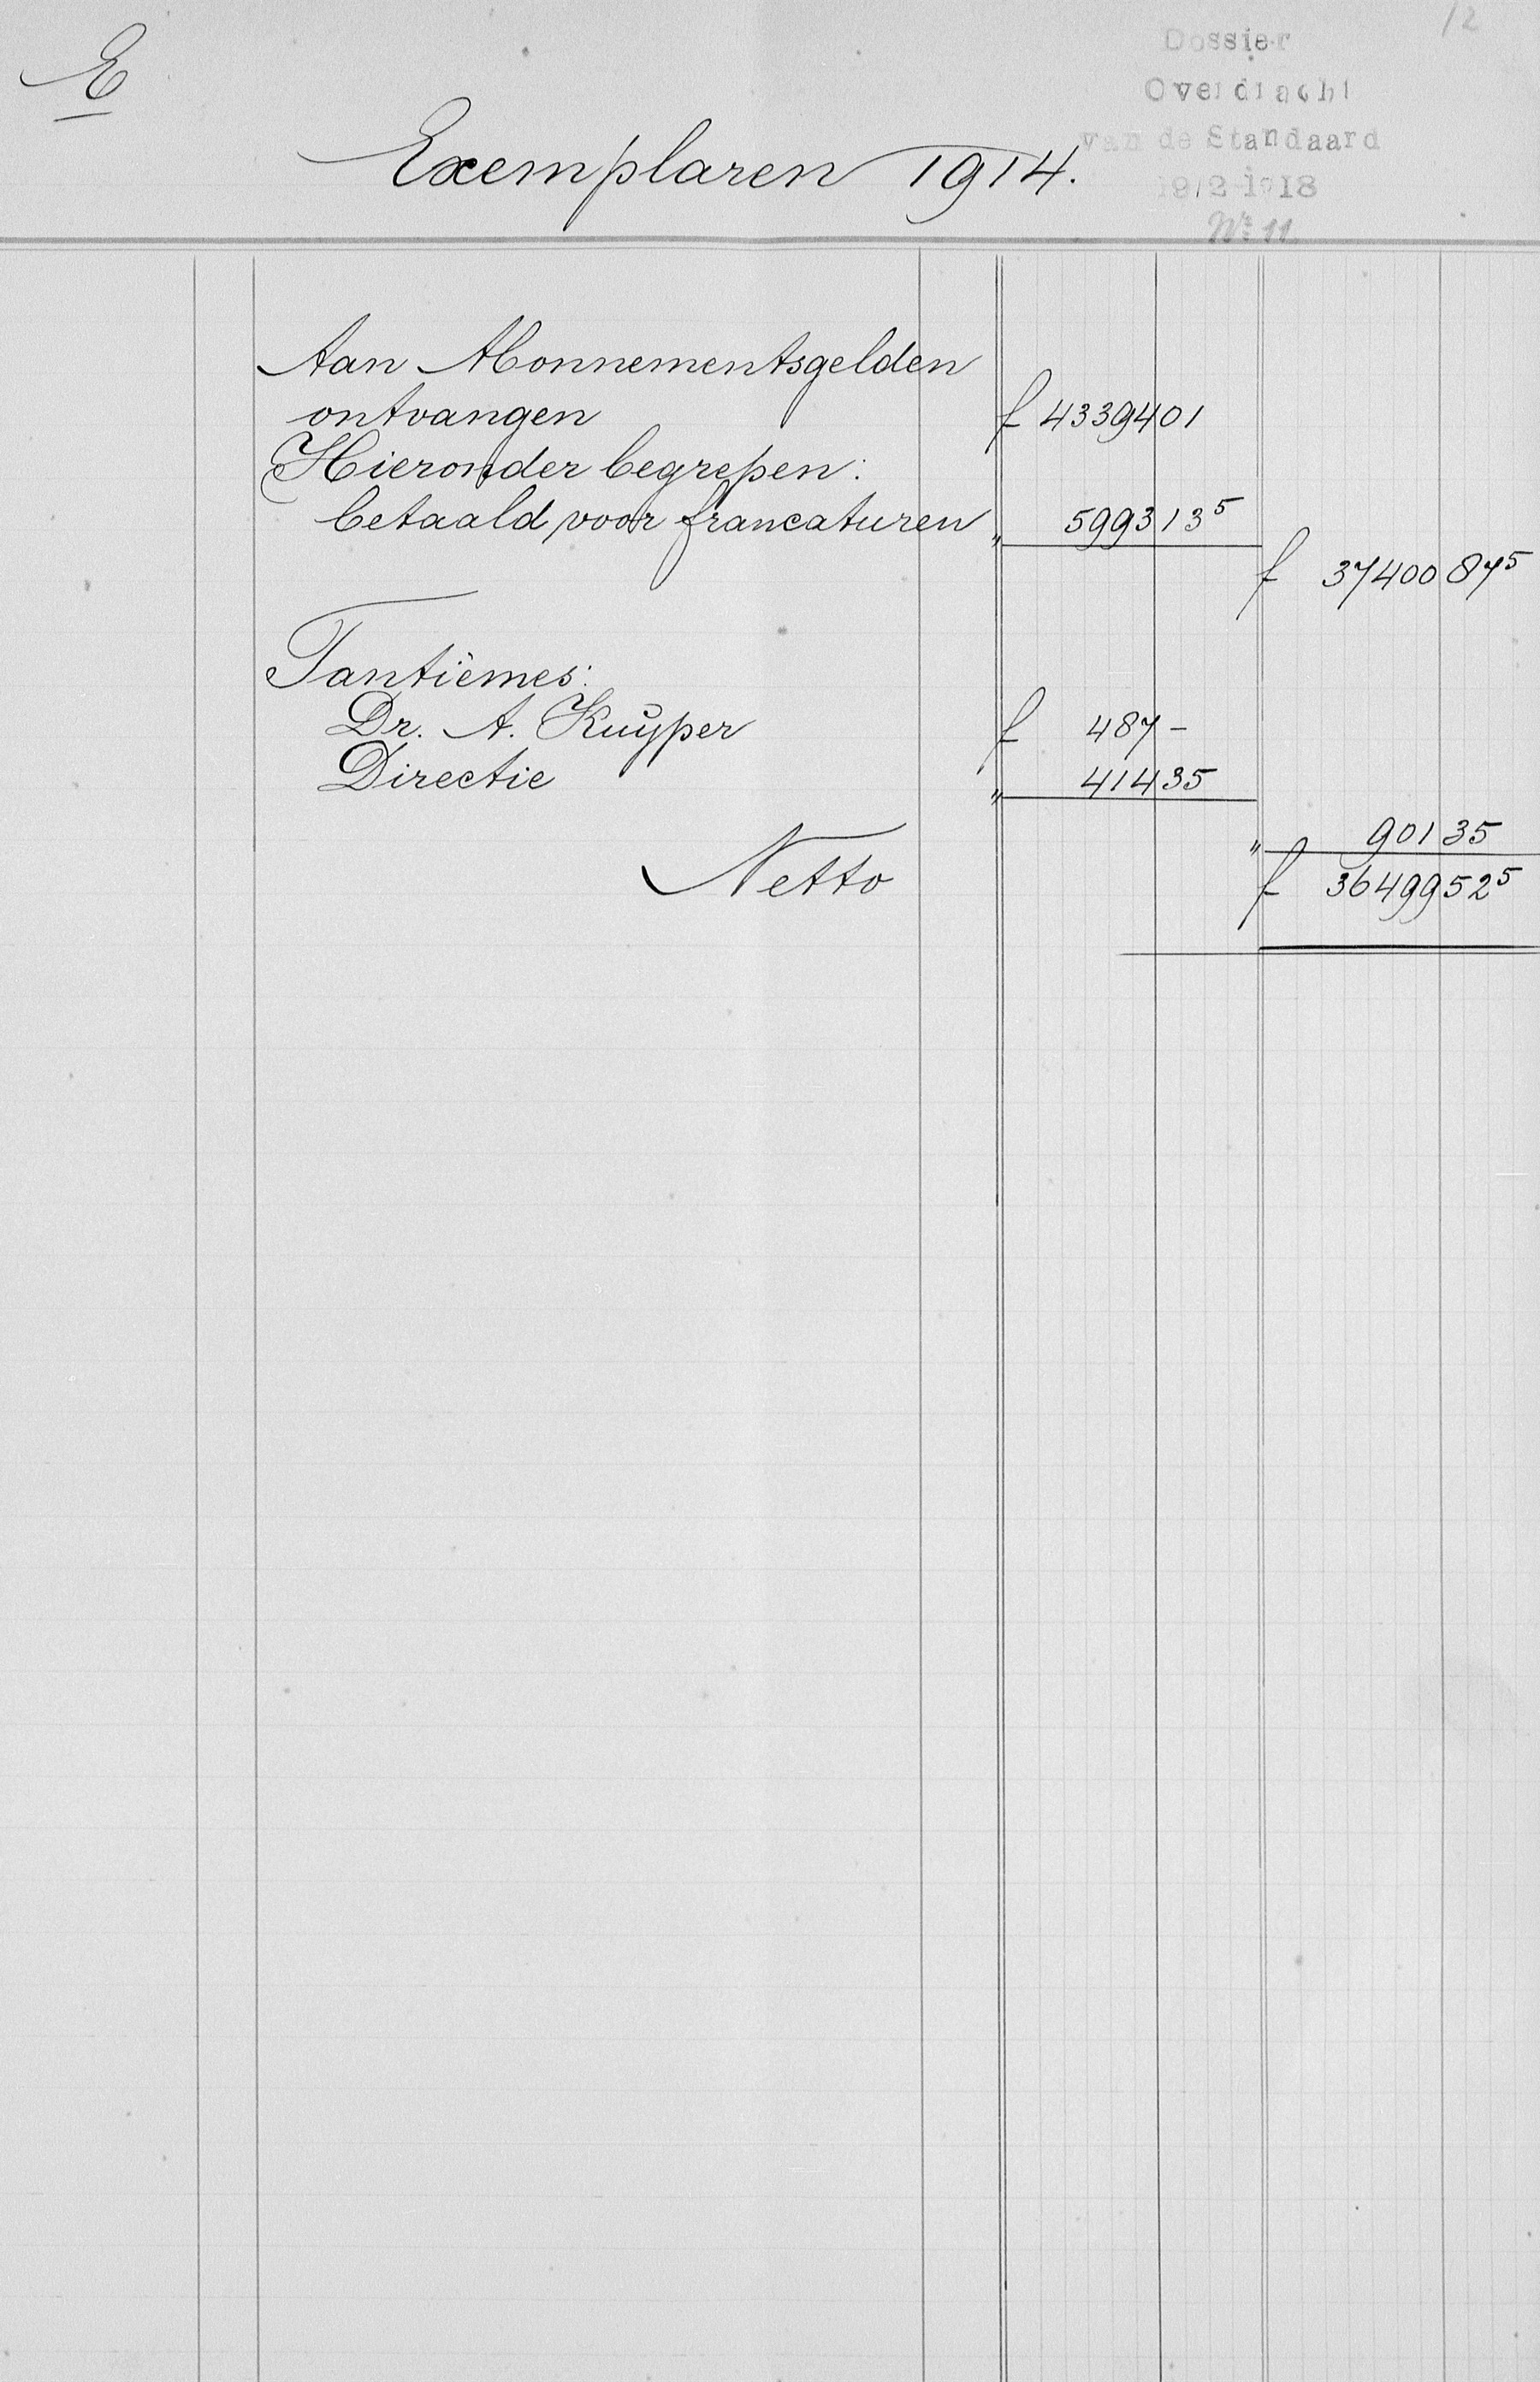 12
E
Dossier
Overdracht
van de Standaard
1912-1918
No 11.
Exemplaren 1914.
Aan Abonnementsgelden
ontvangen f 43394 01
Hieronder begrepen:
betaald voor francaturen " 5993 13⁵
f 37400 87⁵
Tantièmes:
Dr. A. Kuyper f 487 -
Directie " 414 35
" 901 35
Netto f 36499 52⁵